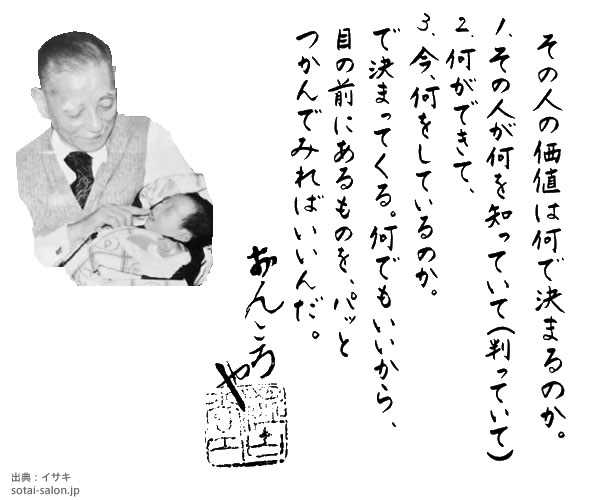 その人の価値は何で決まるのか。
1、その人が何を知っていて(判っていて)
2、何ができて、
3、今、何をしているのか。
で決まってくる。何でもいいから、
目の前にあるものを、パッと
つかんでみればいいんだ。
おんころや
出典：イサキ
sotai-salon.jp